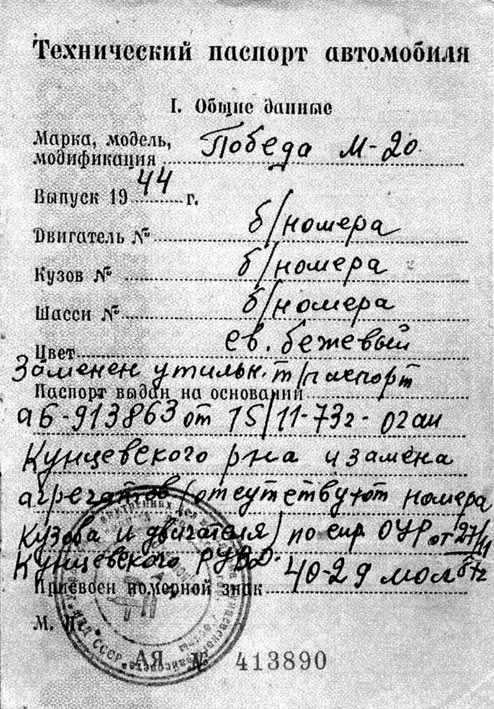 Технический паспорт автомобиля
I. Общие данные
Марка, модель, модификация Победа М-20
Выпуск 19 44 г.
Двигатель № б/номера
Кузов № б/номера
Шасси № б/номера
Цвет св. бежевый
Заменен утильн. т/паспорт
Паспорт выдан на основании
аб-913863 от 15/11-73г-ОГАИ
Кунцевского р-на и замена
агрегатов (отсутствуют номера
кузова и двигателя) по спр ОУР от 27/
Кунцевского РУВД
Присвоен номерной знак 40-29 мол
М. П.
АЯ № 413890